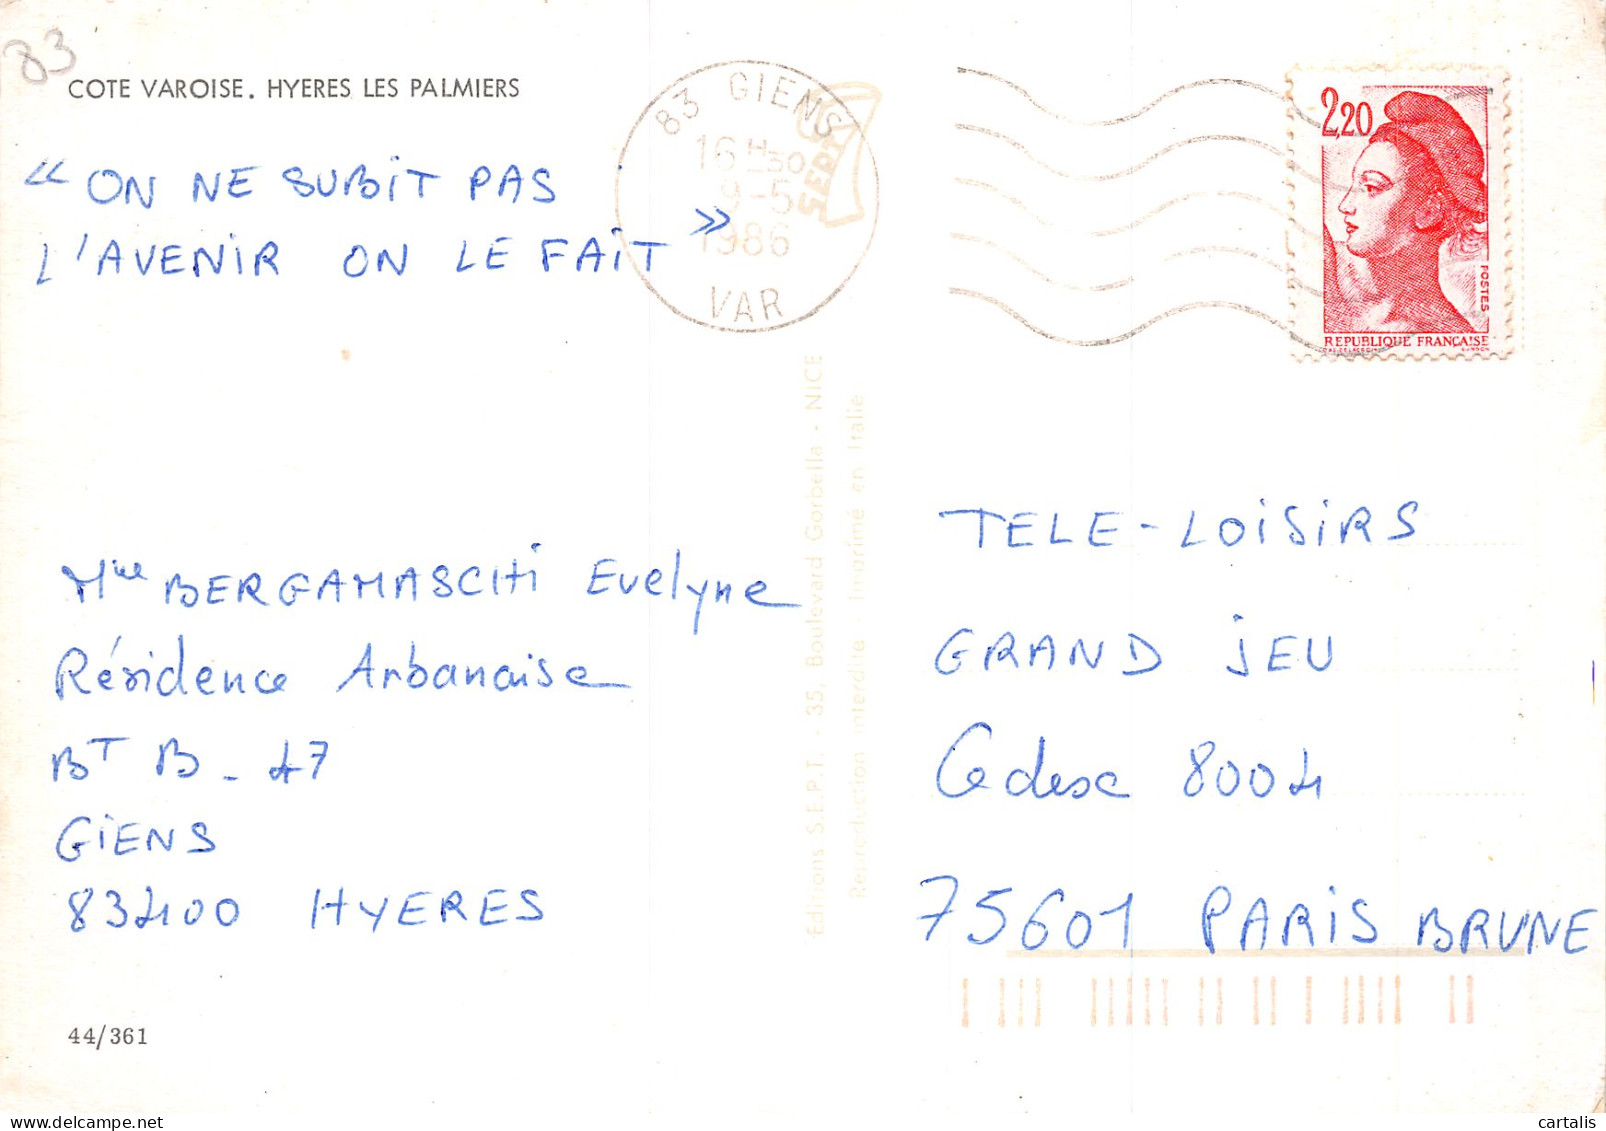 83
COTE VAROISE. HYERES LES PALMIERS
« ON NE SUBIT PAS
L'AVENIR ON LE FAIT »
83 GIENS
16 H 30
9-5
1986
VAR
SEPT
2,20
POSTES
REPUBLIQUE FRANÇAISE
Mme BERGAMASCHI Evelyne
Résidence Arbanaise
BT B - 47
GIENS
83400 HYERES
44/361
Editions S.E.P.T. - 35, Boulevard Gorbella - NICE
Reproduction interdite - Imprimé en Italie
TELE-LOISIRS
GRAND JEU
Cedex 8004
75601 PARIS BRUNE
cartalis